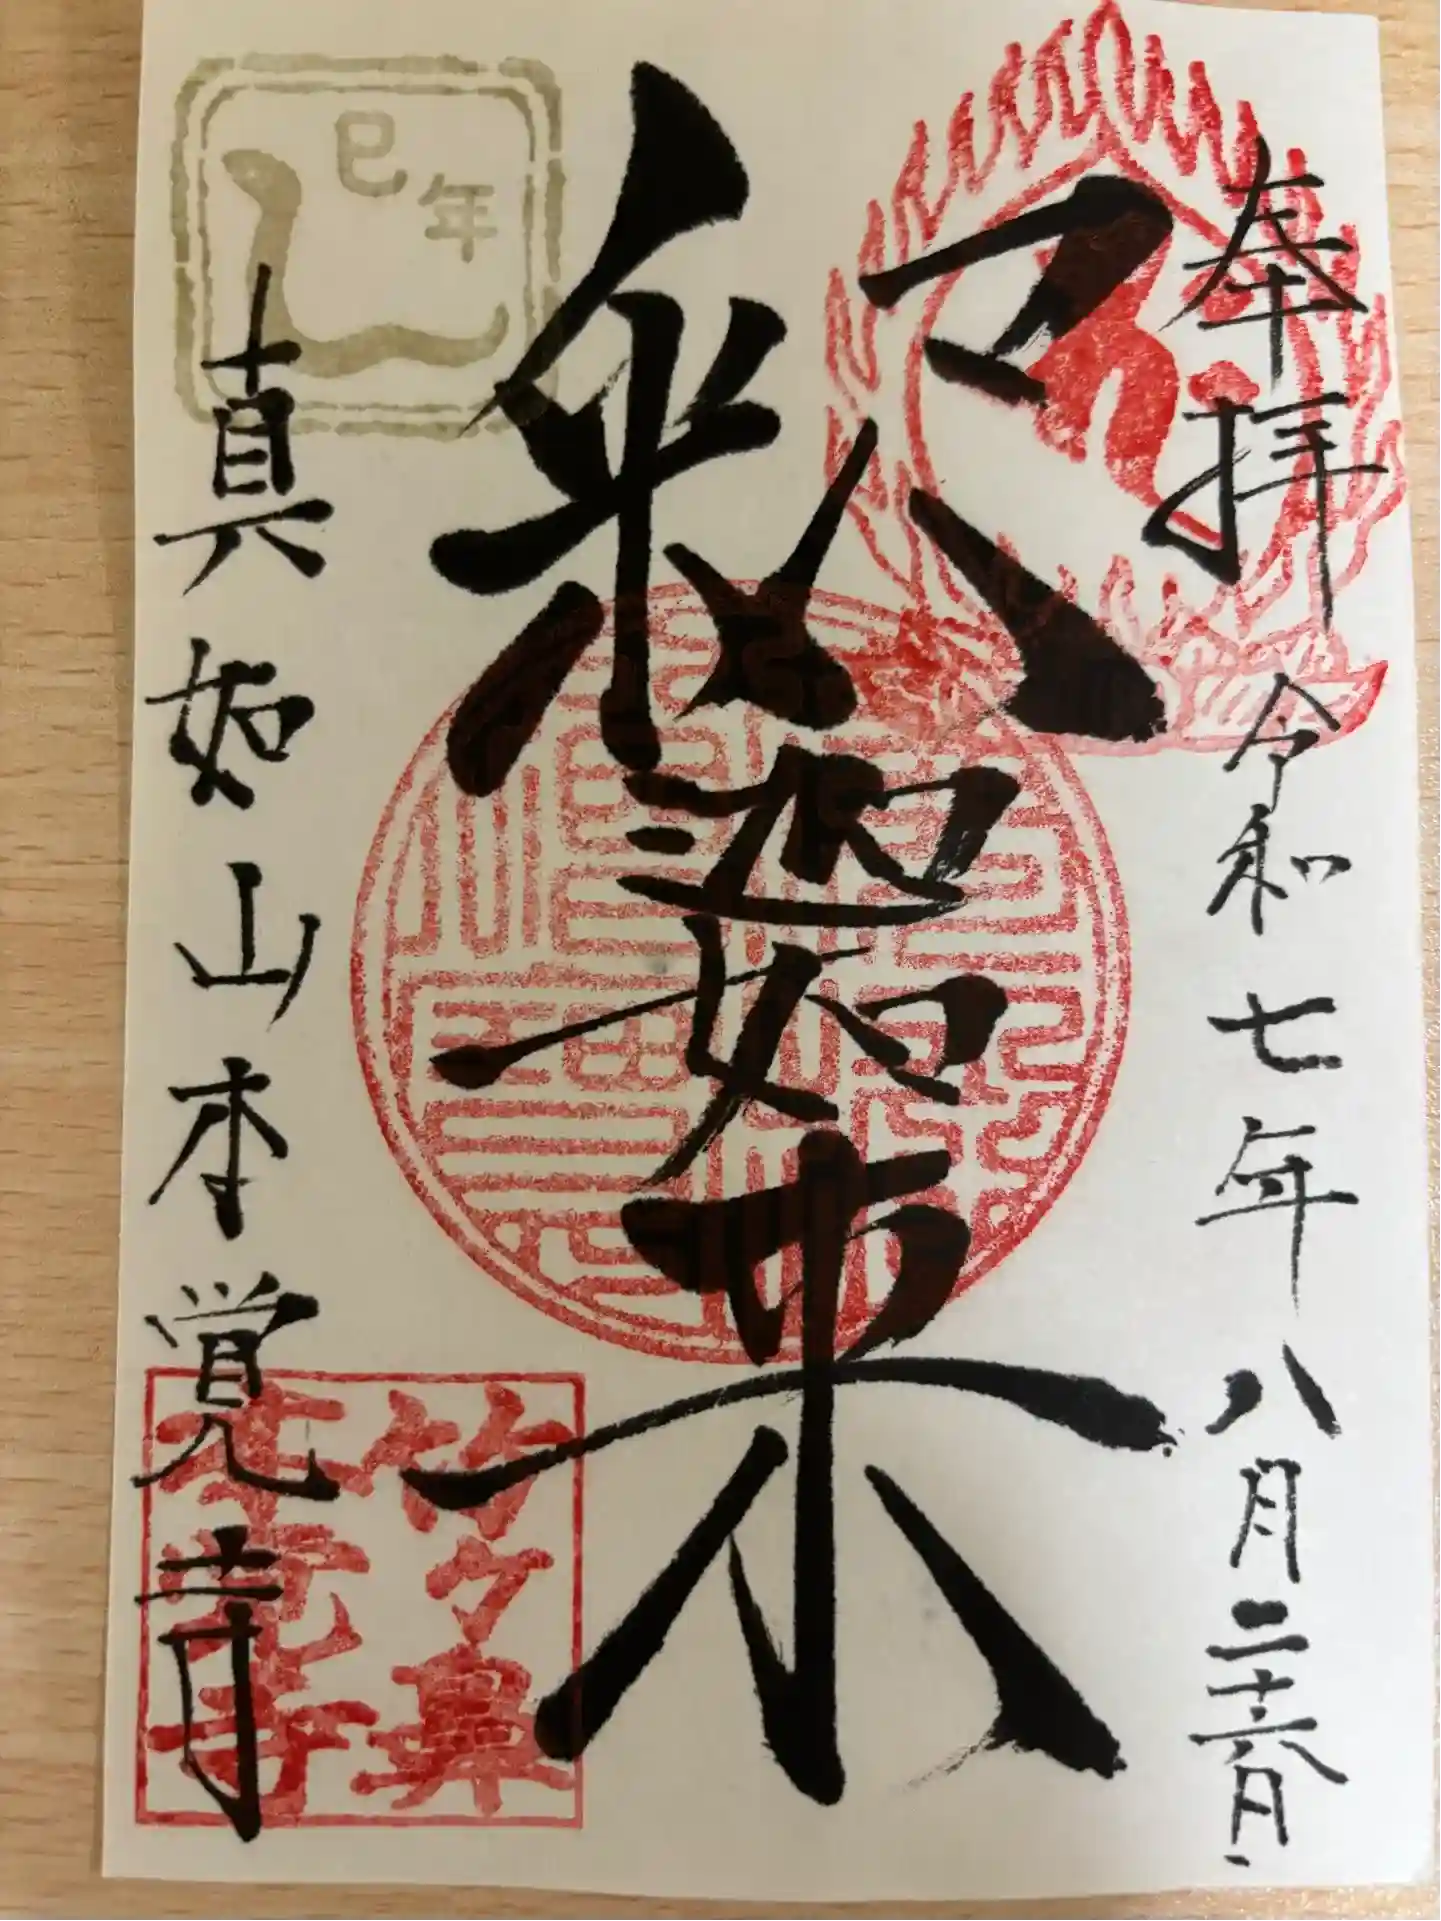 奉拝
令和七年八月二十六日
釈迦如来
真如山本覚寺
巳年
竹ヶ鼻
本覚寺